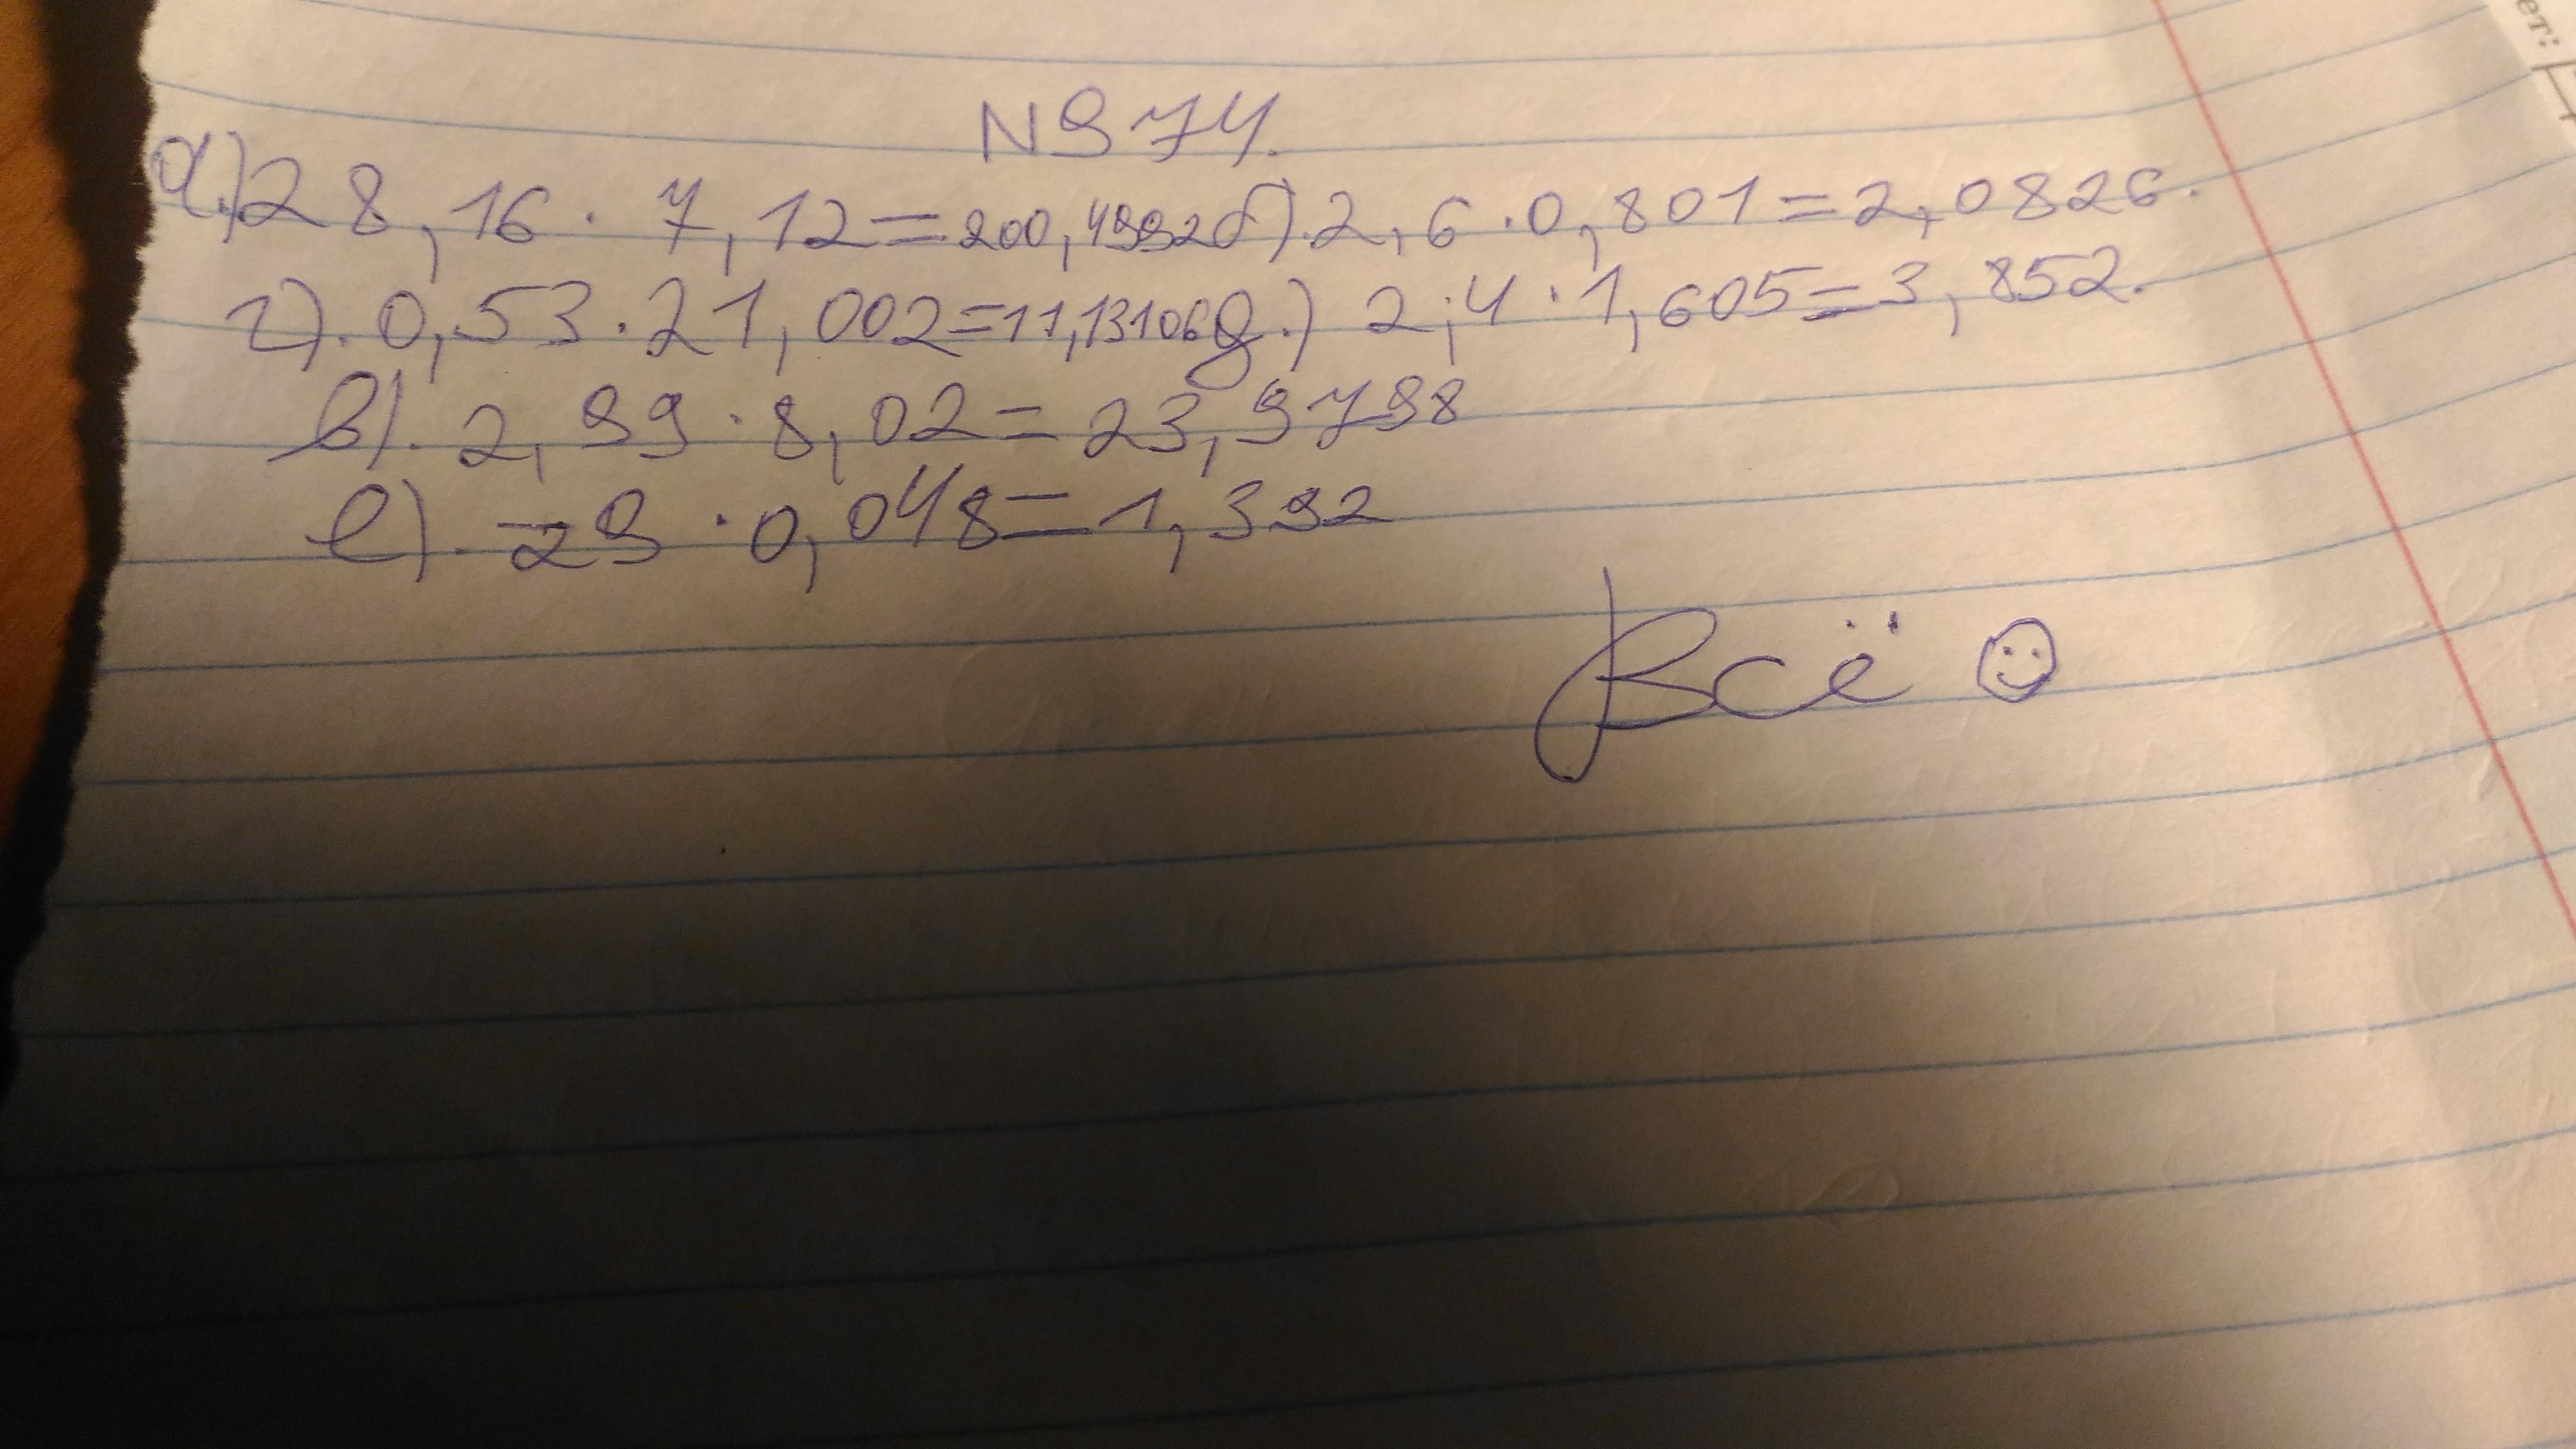 N974.
а.) 28,16 · 7,12=200,4992 б). 2,6 · 0,801=2,0826.
г). 0,53 · 21,002=11,13106 д.) 2,4 · 1,605=3,852.
в). 2,99 · 8,02=23,9798
е). 29 · 0,048=1,392
Всё ☺
ет: